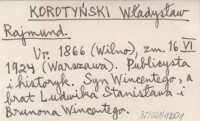 KOROTYŃSKI Władysław
Rajmund.
Ur. 1866 (Wilno), zm. 16.VI
1924 (Warszawa). Publicysta
i historyk. Syn Wincentego, a
brat Ludwika Stanisława i
Brunona Wincentego.